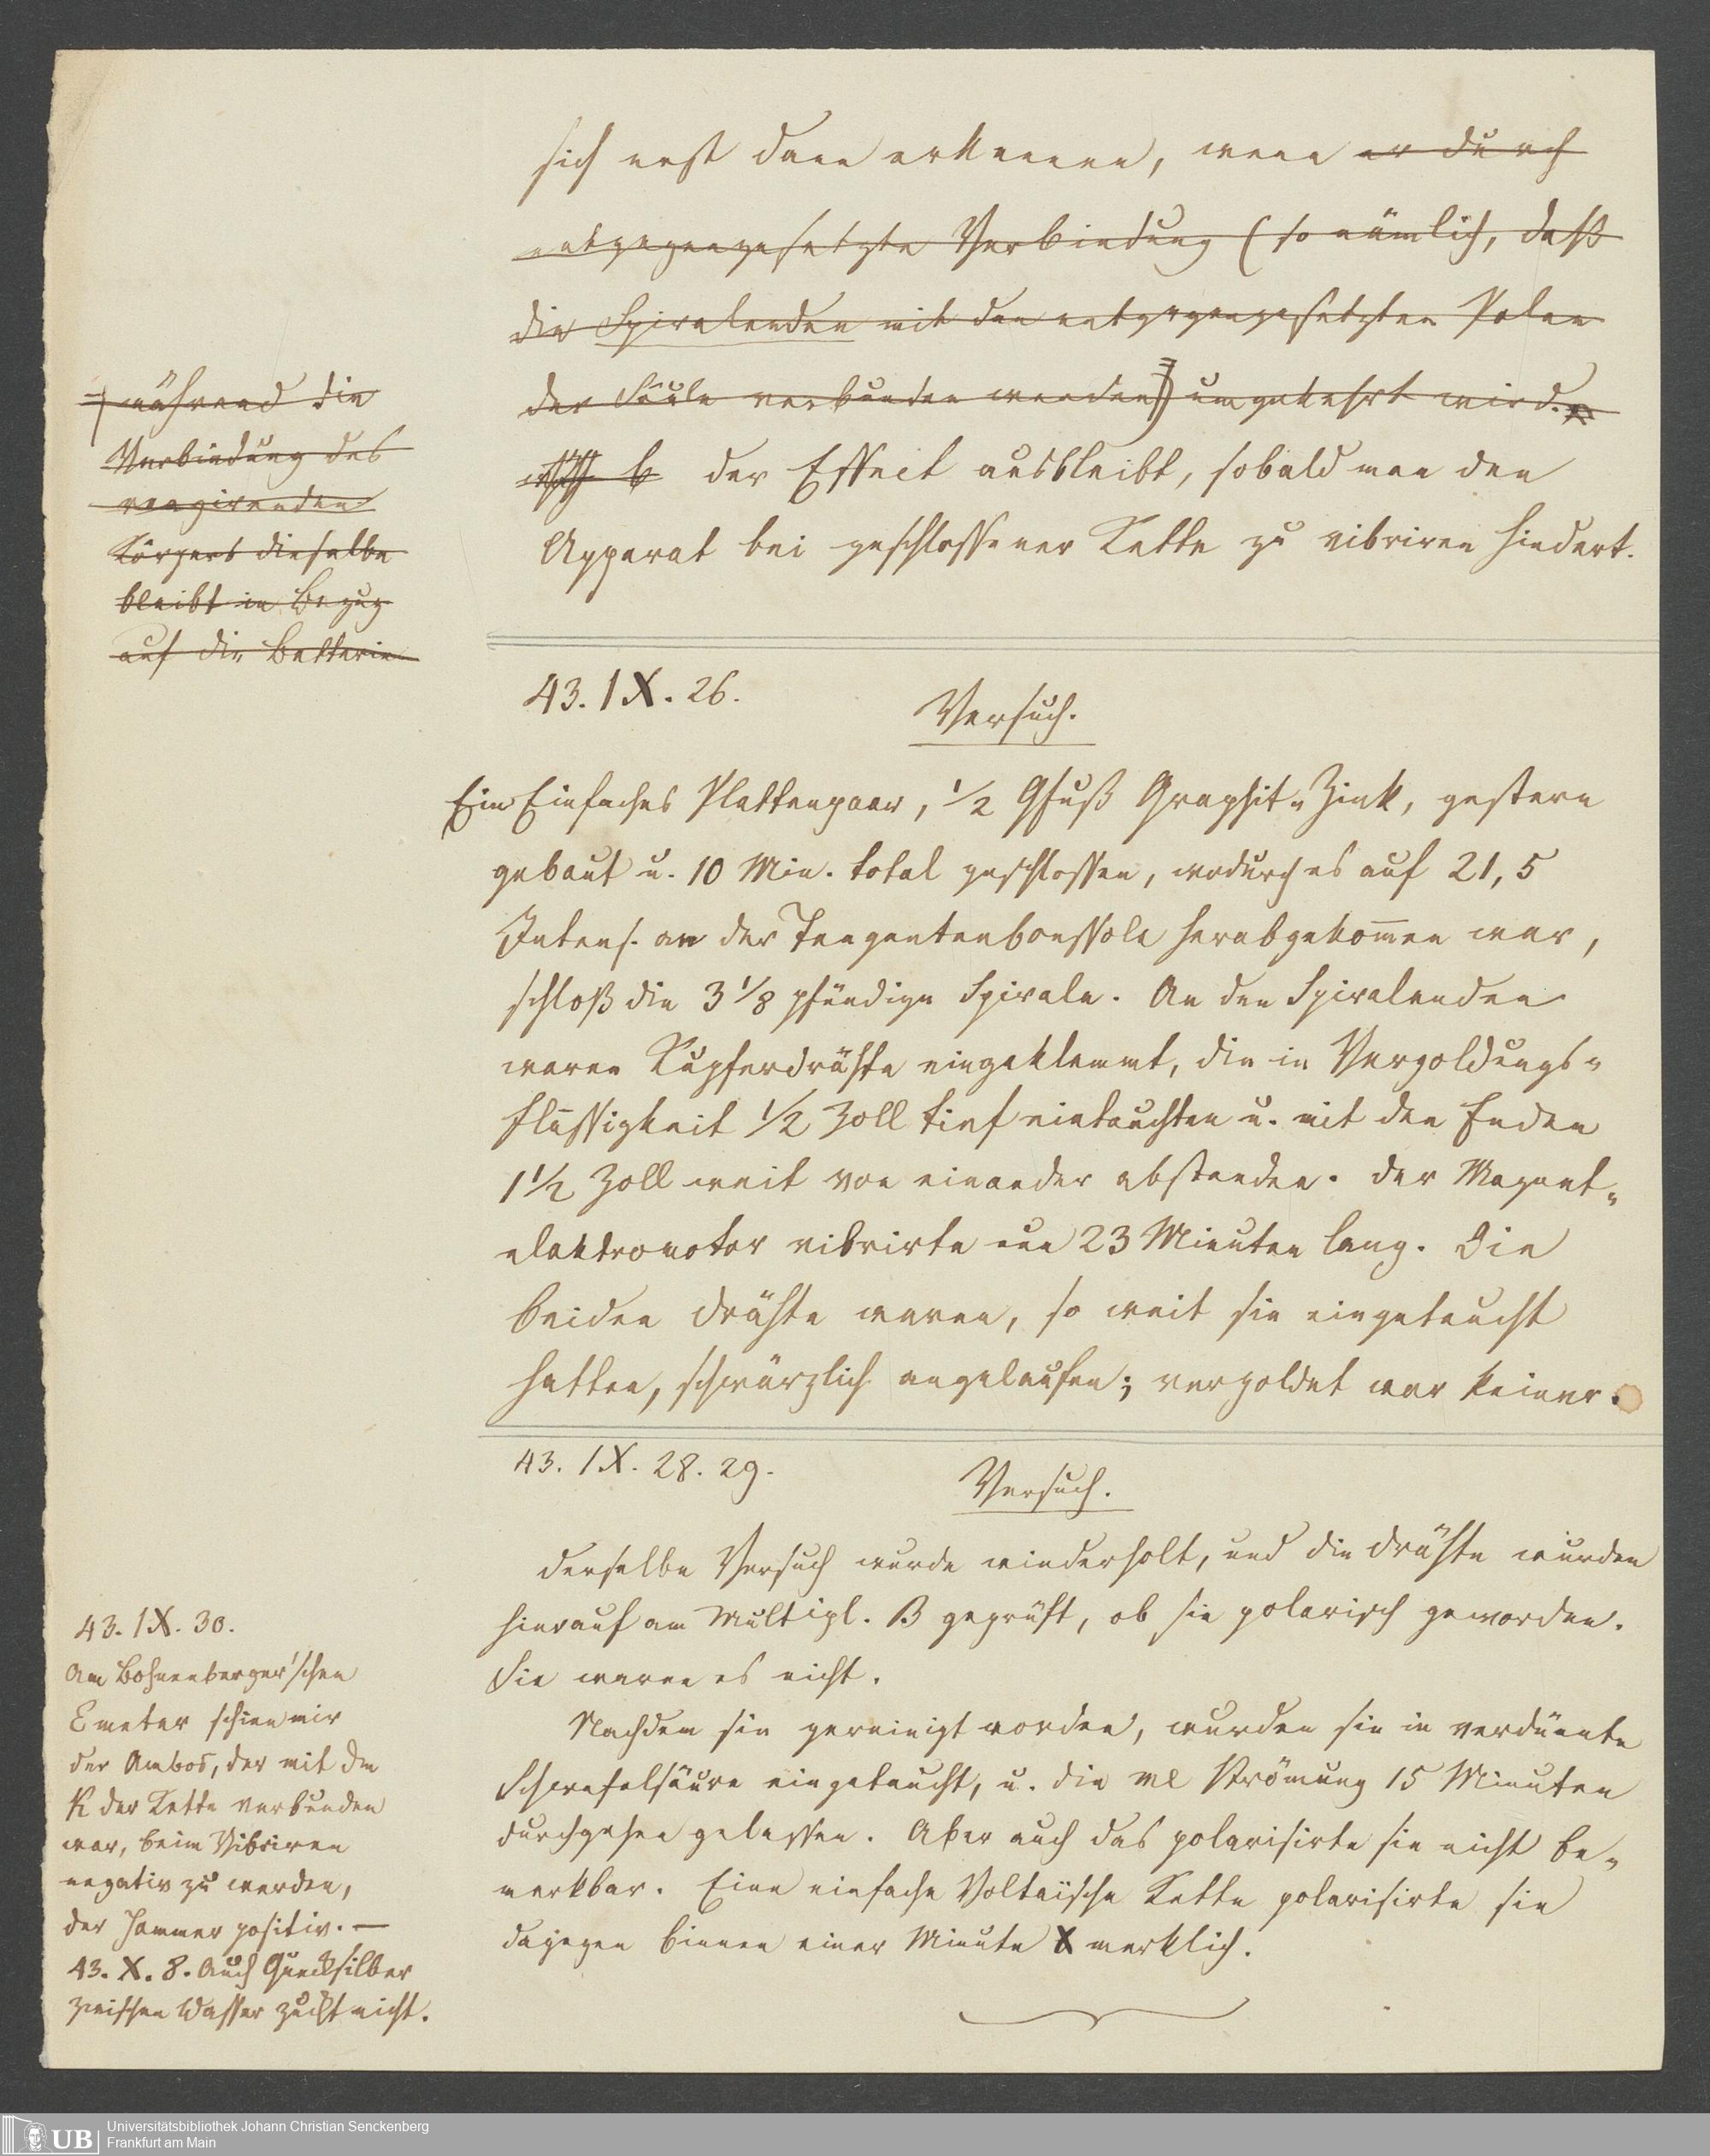 sich erst dann erkennen, wenn er durch
entgegengesetzte Verbindung (so nämlich, daß
die Spiralenden mit den entgegengesetzten Polen
der Säule verbunden werden) umgekehrt wird.
der Effect ausbleibt, sobald man den
Apparat bei geschlossener Kette zu vibriren hindert.
während die
Verbindung des
reagirenden
Körpers dieselbe
bleibt in Bezug
auf die Batterie
43. IX. 26.
Versuch.
Ein Einfaches Plattenpaar, 1/2 Qfuß Graphit-Zink, gestern
gebaut u. 10 Min. total geschlossen, wodurch es auf 21,5
Intens. an der Tangentenboussole herabgekom̄en war,
schloß die 3 1/8 pfündige Spirale. An den Spiralenden
waren Kupferdrähte eingeklemmt, die in Vergoldungs-
flüssigkeit 1/2 Zoll tief eintauchten u. mit den Enden
1 1/2 Zoll weit von einander abstanden. Der Magnet-
elektromotor vibrirte nun 23 Minuten lang. Die
beiden Drähte waren, so weit sie eingetaucht
hatten, schwärzlich angelaufen; vergoldet war keiner.
43. IX. 28. 29.
Versuch.
Derselbe Versuch wurde wiederholt, und die Drähte wurden
hierauf am Multipl. B geprüft, ob sie polarisch geworden.
Sie waren es nicht.
Nachdem sie gereinigt worden, wurden sie in verdünnte
Schwefelsäure eingetaucht, u. die me Strömung 15 Minuten
durchgehen gelassen. Aber auch das polarisirte sie nicht be-
merkbar. Eine einfache Voltaïsche Kette polarisirte sie
dagegen binnen einer Minute merklich.
43. IX. 30.
Am Bohnenberger'schen
Emeter schien mir
der Ambos, der mit dem
K der Kette verbunden
war, beim Vibriren
negativ zu werden,
der Hammer positiv. —
43. X. 8. Auch Quecksilber
zwischen Wasser zuckt nicht.
Universitätsbibliothek Johann Christian Senckenberg
Frankfurt am Main
UB